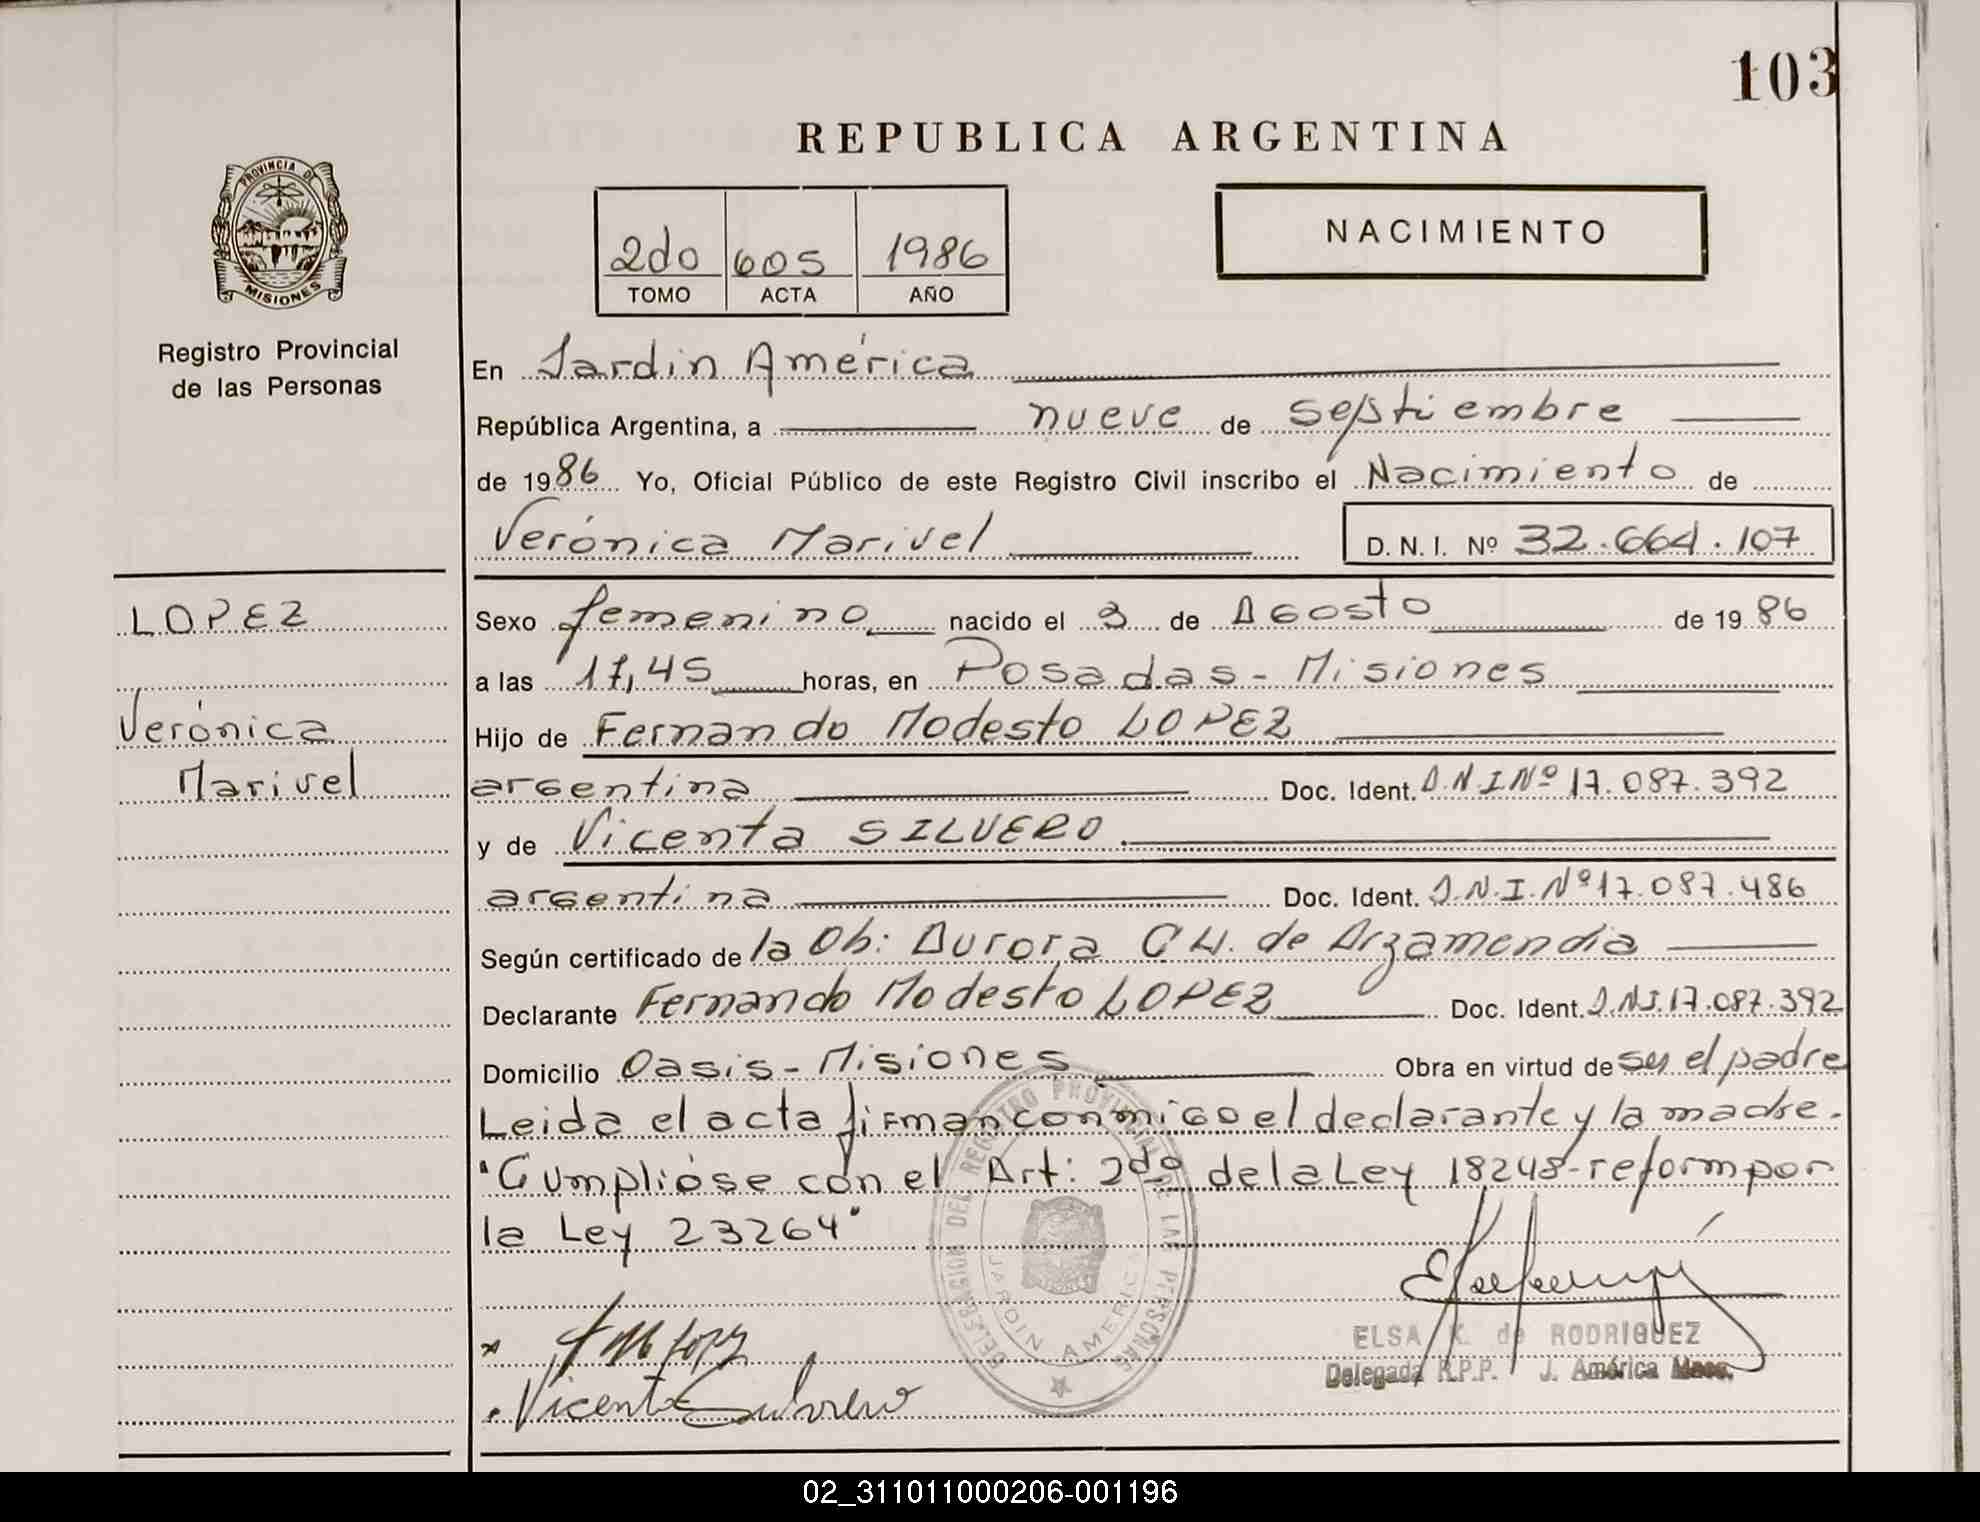 103
REPUBLICA ARGENTINA
PROVINCIA DE
MISIONES
Registro Provincial
de las Personas
2do 605 1986
TOMO ACTA AÑO
NACIMIENTO
En Jardin América
República Argentina, a nueve de septiembre
de 1986 Yo, Oficial Público de este Registro Civil inscribo el Nacimiento de
Verónica Marivel D.N.I. Nº 32.664.107
LOPEZ
Verónica
Marivel
Sexo femenino nacido el 3 de Agosto de 1986
a las 17,45 horas, en Posadas - Misiones
Hijo de Fernando Modesto LOPEZ
argentina Doc. Ident. D.N.I Nº 17.087.392
y de Vicenta SILVERO.
argentina Doc. Ident. D.N.I. Nº 17.087.486
Según certificado de la Ob: Aurora CH. de Arzamendia
Declarante Fernando Modesto LOPEZ Doc. Ident. D.N.I. 17.087.392
Domicilio Oasis - Misiones Obra en virtud de ser el padre
Leida el acta firman conmigo el declarante y la madre.
"Cumplióse con el Art: 2do de la Ley 18248- reform por
la Ley 23264"
DELEGACION DEL REGISTRO PROVINCIAL DE LAS PERSONAS
JARDIN AMERICA
Vicenta Silvero
ELSA K. de RODRIGUEZ
Delegada R.P.P. J. América Mnes.
02_311011000206-001196